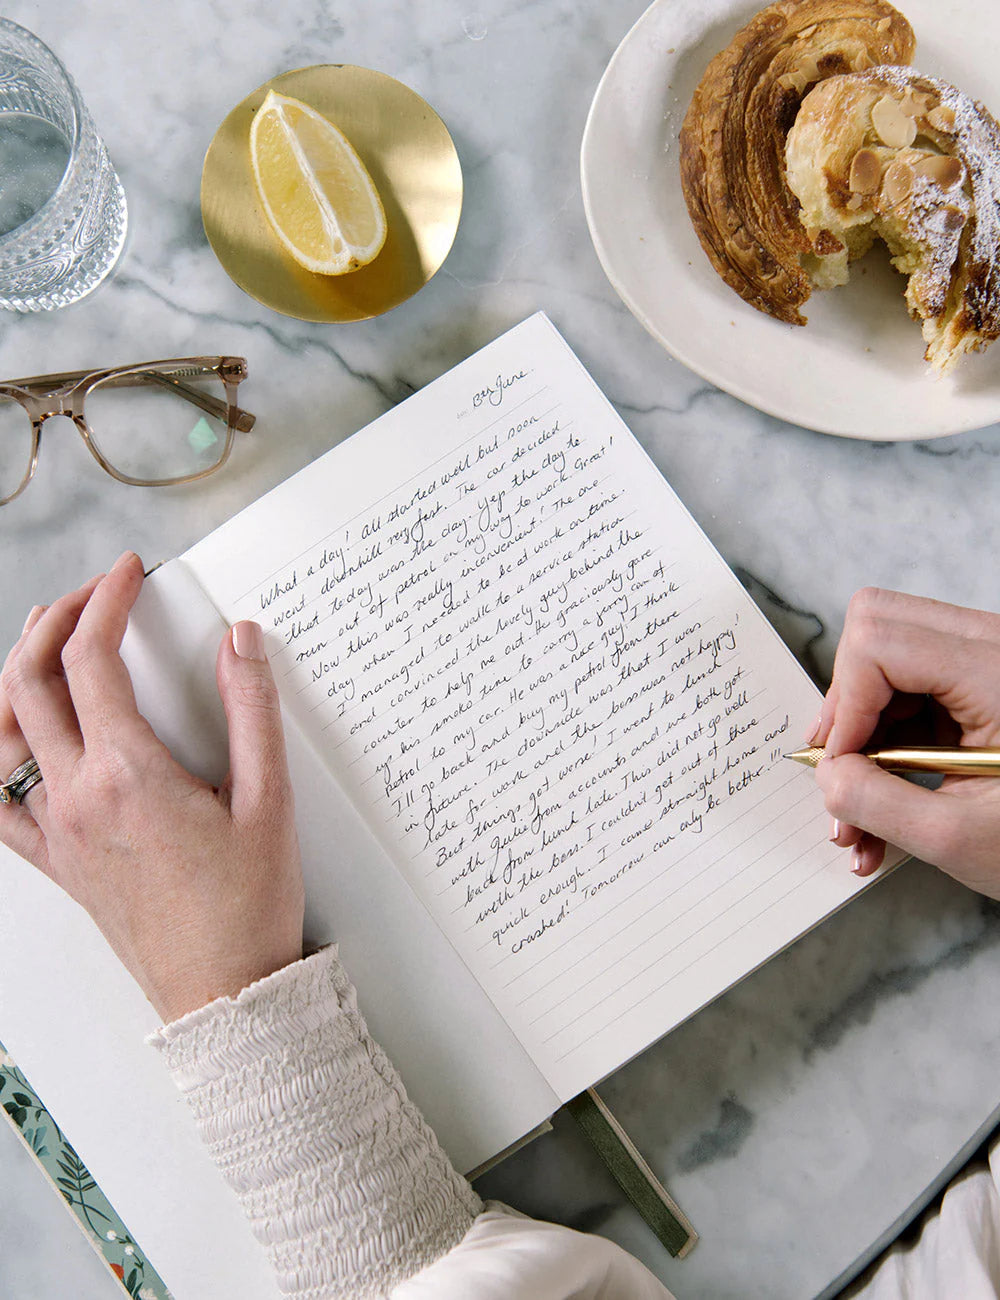 June
What a day! All started well but soon
went downhill very fast. The car decided
that today was the day. Yep the day to
run out of petrol on my way to work. Great!
Now this was really inconvenient! The one
day when I needed to be at work on time.
I managed to walk to a service station
and convinced the lovely guy behind the
counter to help me out. He graciously gave
up his smoko time to carry a jerry can of
petrol to my car. He was a nice guy! I think
I'll go back and buy my petrol from there
in future. The downside was that I was
late for work and the boss was not happy!
But things got worse! I went to lunch
with Julie from accounts and we both got
back from lunch late. This did not go well
with the boss. I couldn't get out of there
quick enough. I came straight home and
crashed! Tomorrow can only be better...!!!